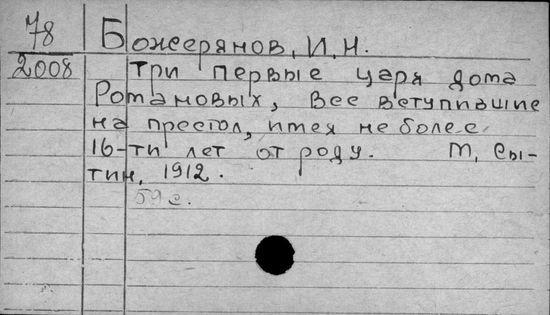 78
2008
Божерянов, И. Н.
Три первые царя дома
Романовых, все вступившие
на престол, имея не более
16-ти лет от роду. М, Сы-
тин, 1912.
59 с.